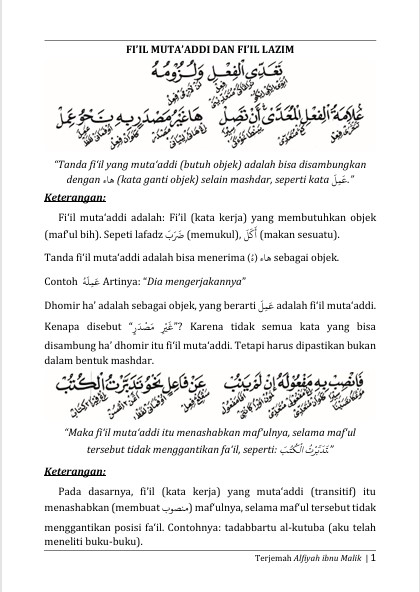 FI‘IL MUTA‘ADDI DAN FI‘IL LAZIM
تَعَدِّي الْفِعْلِ وَلُزُومُهُ
عَلَامَةُ الْفِعْلِ الْمُعَدَّى أَنْ تَصِلْ هَا غَيْرِ مَصْدَرٍ بِهِ نَحْوُ عَمِلْ
“Tanda fi‘il yang muta‘addi (butuh objek) adalah bisa disambungkan
dengan هاء (kata ganti objek) selain mashdar, seperti kata عَمِلَ.”
Keterangan:
Fi‘il muta‘addi adalah: Fi‘il (kata kerja) yang membutuhkan objek
(maf‘ul bih). Sepeti lafadz ضَرَبَ (memukul), أَكَلَ (makan sesuatu).
Tanda fi‘il muta‘addi adalah bisa menerima هاء (ه) sebagai objek.
Contoh عَمِلَهُ Artinya: “Dia mengerjakannya”
Dhomir ha’ adalah sebagai objek, yang berarti عَمِلَ adalah fi‘il muta‘addi.
Kenapa disebut “غَيْرِ مَصْدَرٍ”? Karena tidak semua kata yang bisa
disambung ha’ dhomir itu fi‘il muta‘addi. Tetapi harus dipastikan bukan
dalam bentuk mashdar.
فَانْصِبْ بِهِ مَفْعُولَهُ إِنْ لَمْ يَنُبْ عَنْ فَاعِلٍ نَحْوُ تَدَبَّرْتُ الْكُتُبْ
“Maka fi‘il muta‘addi itu menashabkan maf‘ulnya, selama maf‘ul
tersebut tidak menggantikan fa‘il, seperti: تَدَبَّرْتُ الْكُتُبَ”
Keterangan:
Pada dasarnya, fi‘il (kata kerja) yang muta‘addi (transitif) itu
menashabkan (membuat منصوب) maf‘ulnya, selama maf‘ul tersebut tidak
menggantikan posisi fa‘il. Contohnya: tadabbartu al-kutuba (aku telah
meneliti buku-buku).
Terjemah Alfiyah ibnu Malik | 1